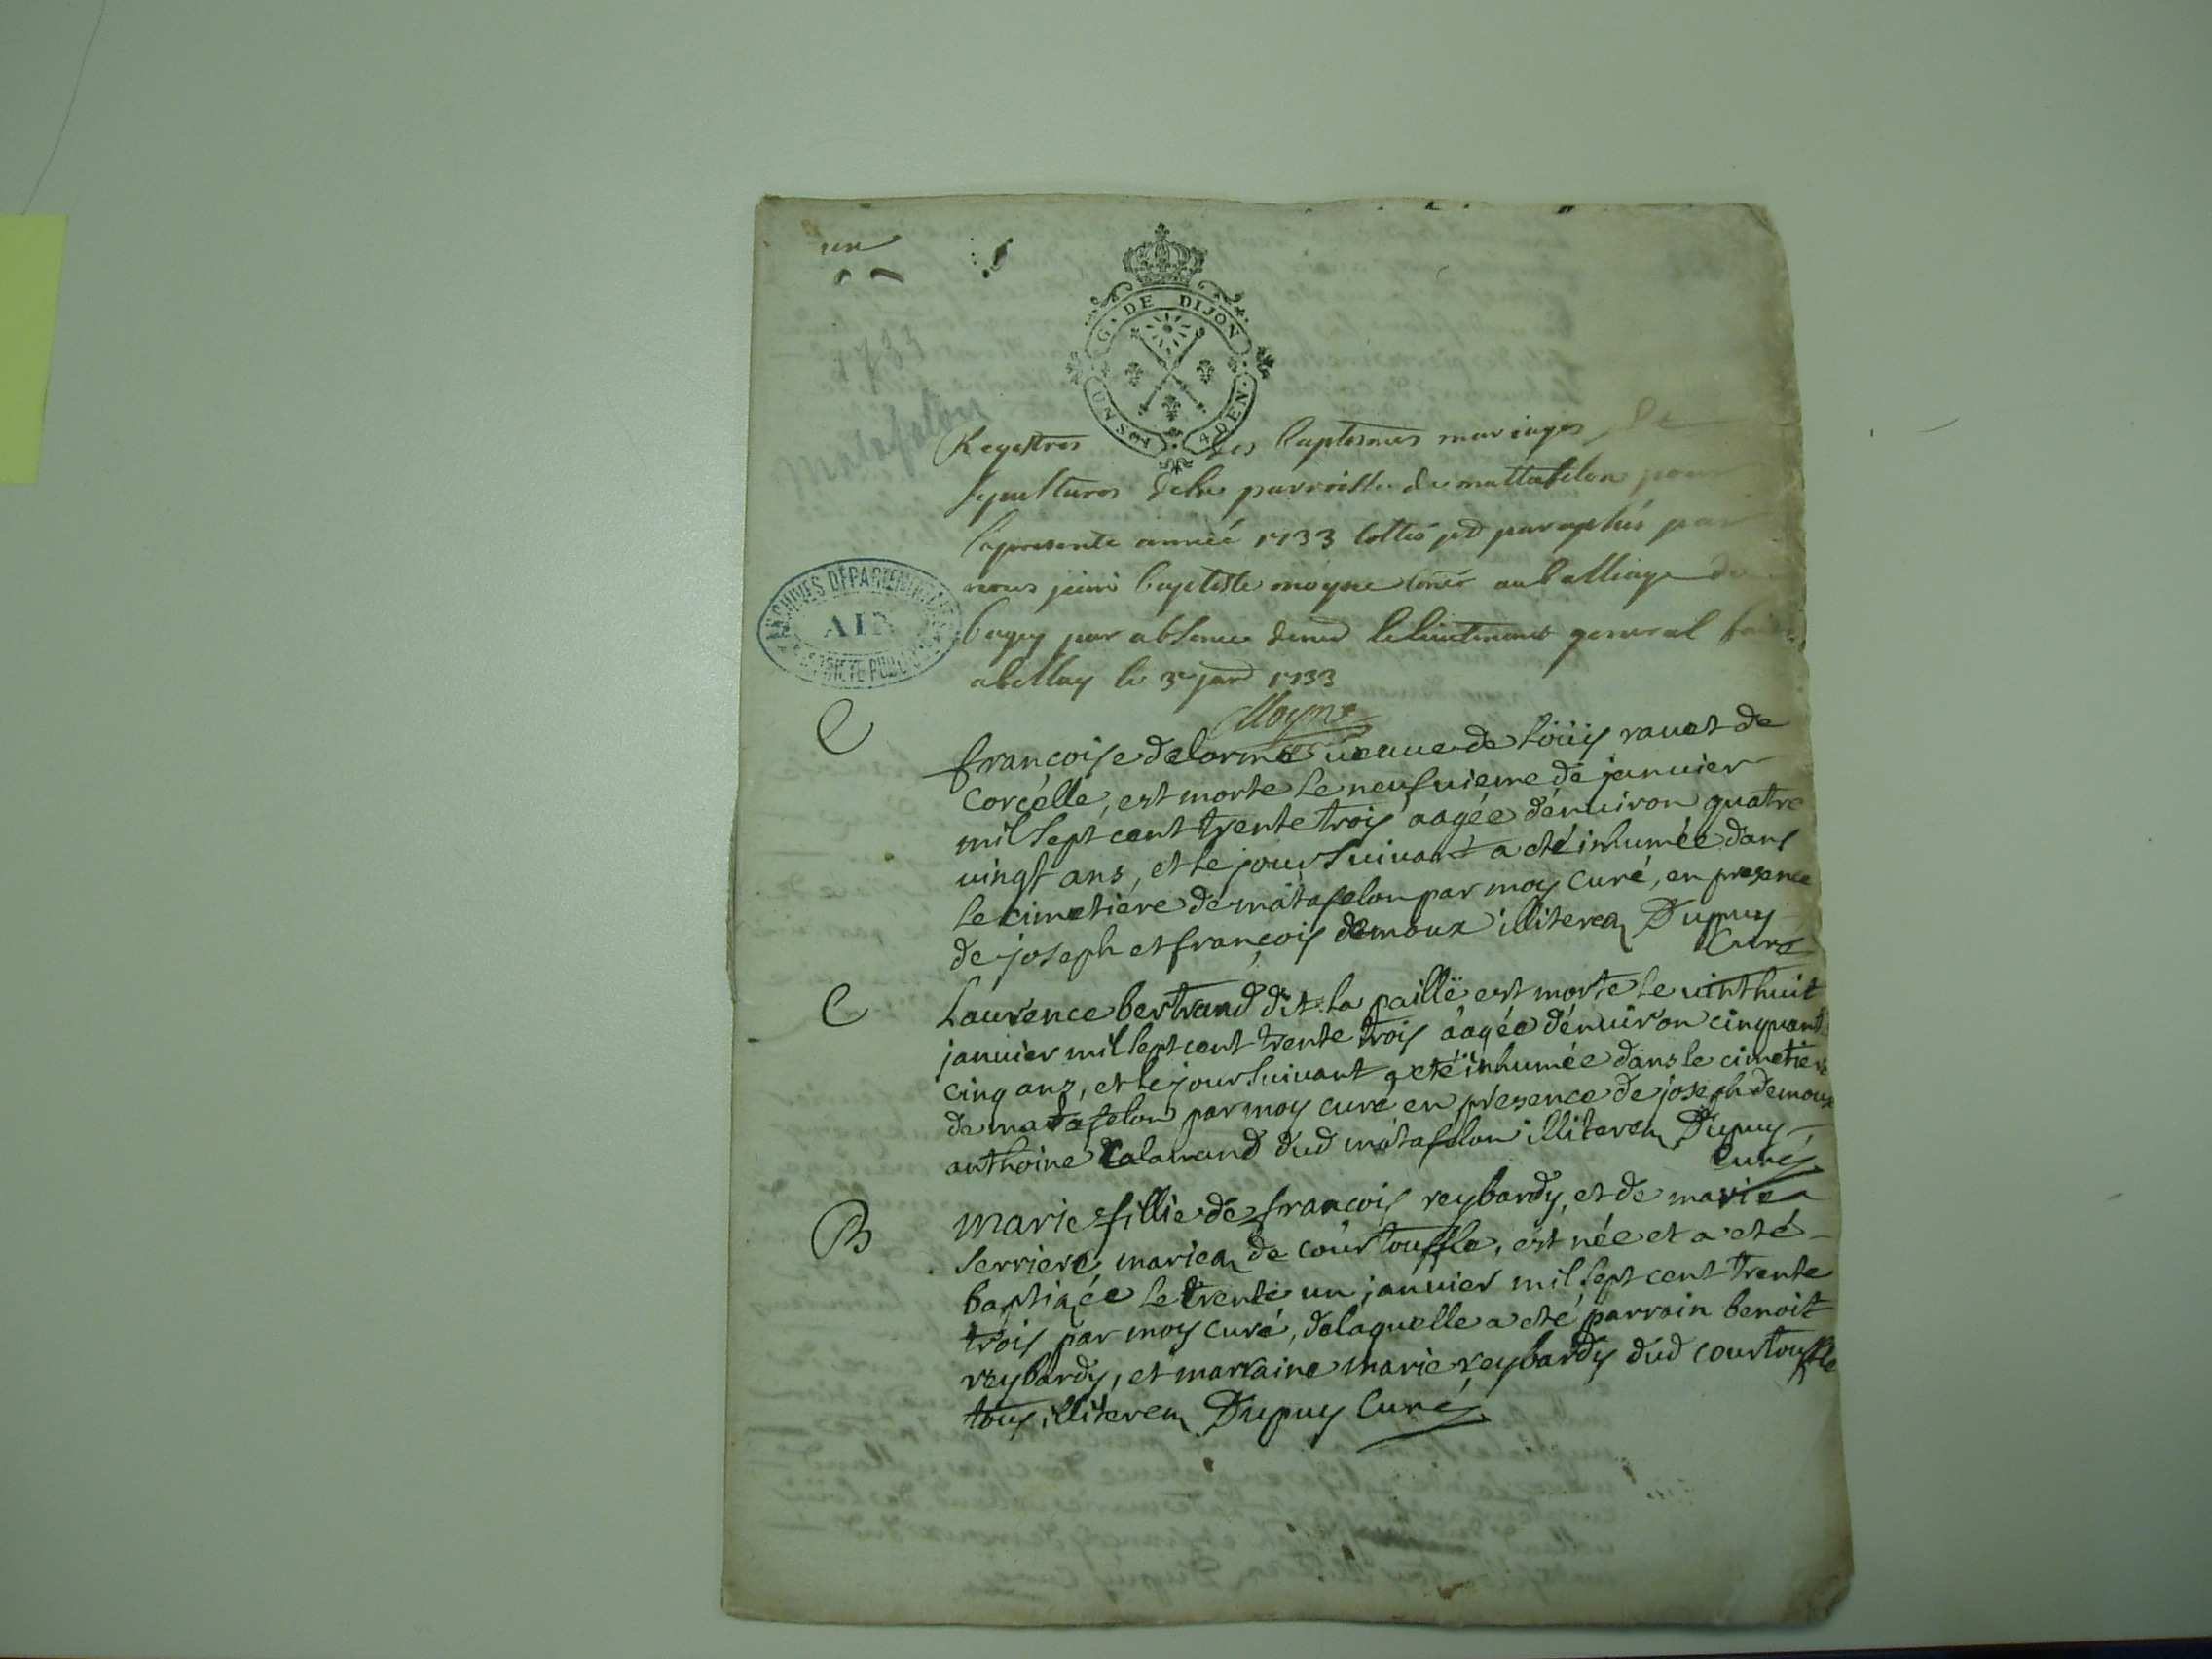 un
G. DE DIJON
UN SOL 4 DEN.
1733
Matafelon
Registres des baptesmes mariages et
sepultures dela parroisse de mattafelon pour
la presente année 1733 cottés et paraphés par
nous jean baptiste moyne au balliage de
bugey par absence le lieutenant general
a bellay le 3e janr 1733
Moyne
ARCHIVES DÉPARTEMENTALES
AIN
PROPRIÉTÉ PUBLIQUE
françoise delorme veuve de loüis rauet de
corcelle, est morte le neufuieme de januier
mil sept cent trente trois aagée d'enuiron quatre
vingt ans, et le jour suiuant a eté inhumée dans
le cimetiere de matafelon par moy curé, en presence
de joseph et françois demoux illiterez Dupuy
Curé
Laurence bertrand dit la paillë est morte le vint huit
januier mil sept cent trente trois aagée d'enuiron cinquante
cinq ans, et le jour suiuant a eté inhumée dans le cimetiere
de matafelon par moy curé en presence de joseph demoux
anthoine calamand dud matafelon illiterez Dupuy
Curé
B marie fillie de françois reybardy, et de marie
serriere mariez de courtouffle, est née et a eté
baptizée le trente un januier mil sept cent trente
trois par moy curé, de laquelle a eté parrain benoit
reybardy, et marraine marie reybardy dud courtouffle
tous illiterez Dupuy Curé